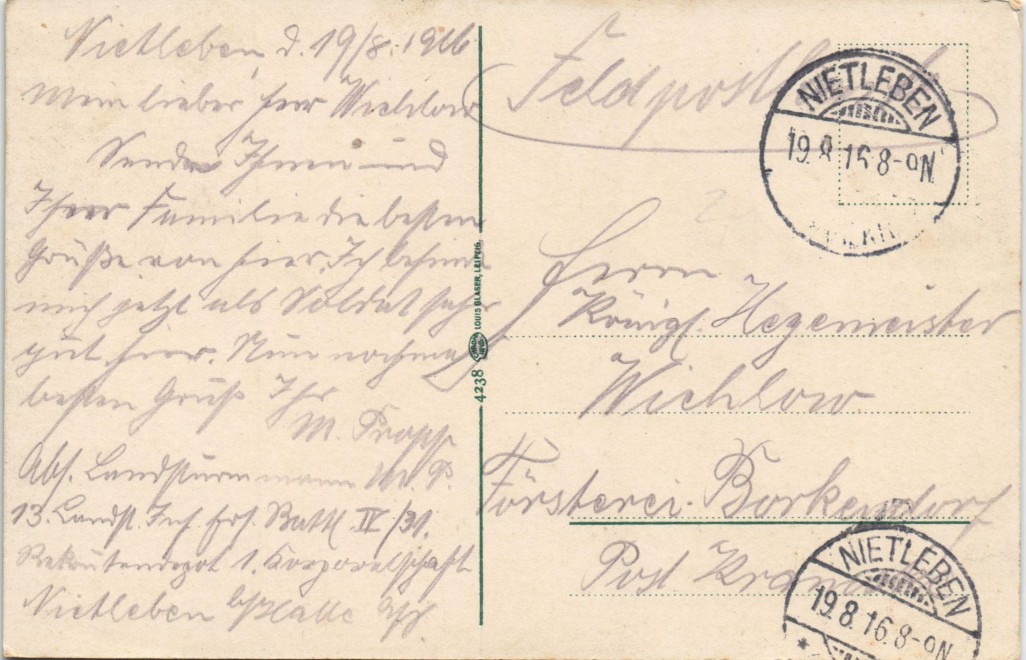 Nietleben, d. 19/8. 1916
Mein lieber Herr Wichlow
Sende Ihnen und
Ihrer Familie die besten
Grüße von hier. Ich befinde
mich jetzt als Soldat sehr
gut hier. Nun nochmals
besten Gruß Ihr
M.
Abs. Landsturmmann
13. Landst. Inf. Ers. Batl. IV/31.
Rekrutendepot 1. Korporalschaft
Nietleben b/Halle
4238
LOUIS GLASER, LEIPZIG.
Feldpost
NIETLEBEN
19.8.16.8-9N.
Herrn
Königl. Hegemeister
Wichlow
Försterei Borkendorf
Post
NIETLEBEN
19.8.16.8-9N.